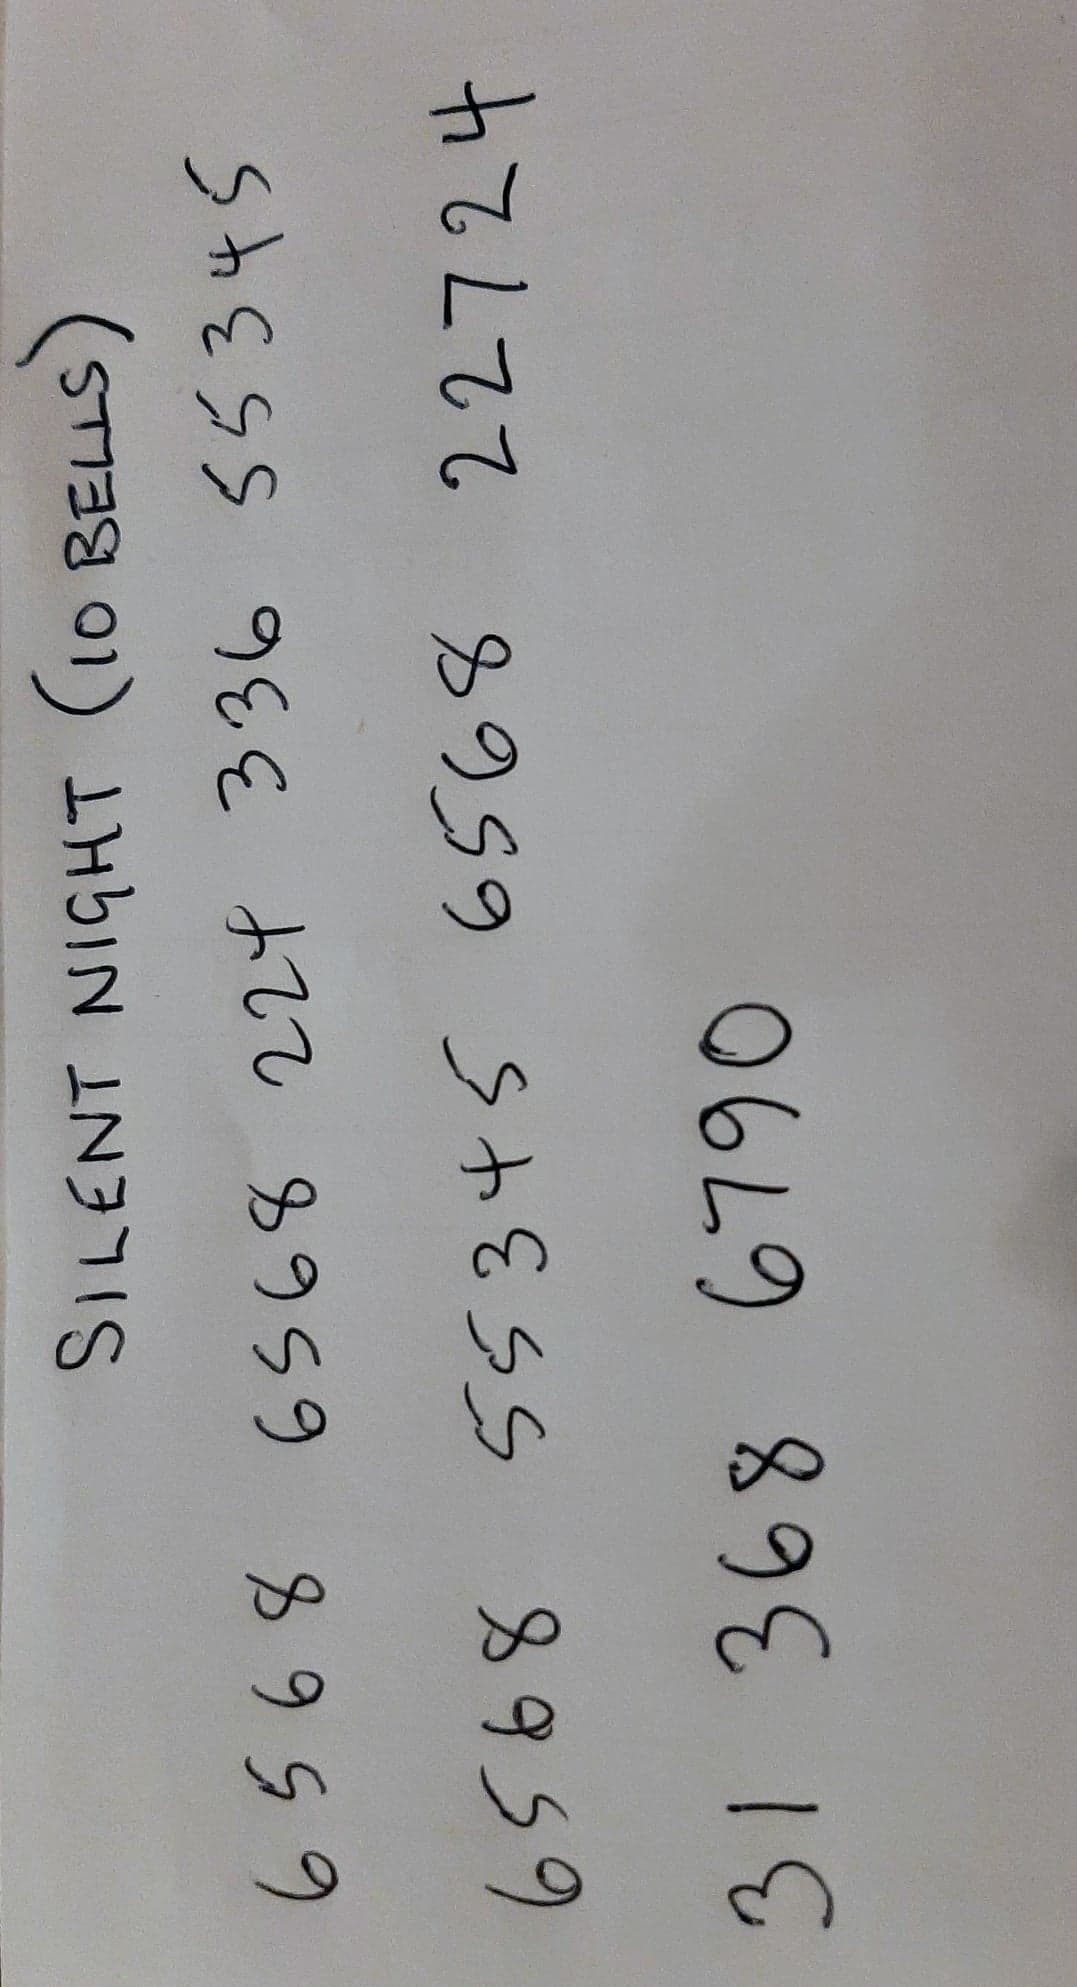 SILENT NIGHT (10 BELLS)
6568 6568 224 336 55345
6568 55345 6568 22724
31 368 6790